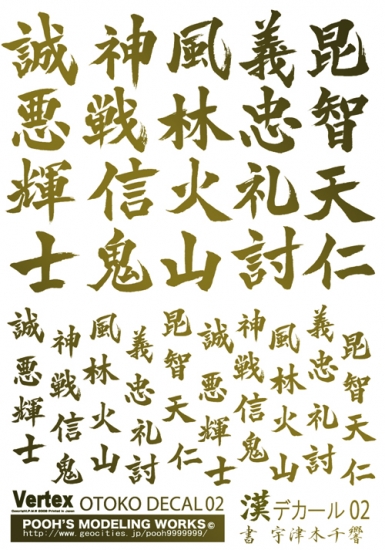 誠神風義昆
悪戦林忠智
輝信火礼天
士鬼山討仁
誠悪輝士
神戦信鬼
風林火山
義忠礼討
昆智天仁
誠悪輝士
神戦信鬼
風林火山
義忠礼討
昆智天仁
Vertex OTOKO DECAL 02
POOH'S MODELING WORKS©
http://www.geocities.jp/pooh9999999/
漢デカール 02
書 宇津木千響